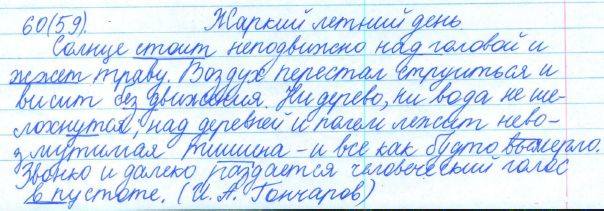 60(59). Жаркий летний день
Солнце стоит неподвижно над головой и
жжет траву. Воздух перестал струиться и
висит без движения. Ни дерево, ни вода не ше-
лохнутся; над деревней и полем лежит нево-
змутимая тишина – и все как будто вымерло.
Звонко и далеко раздается человеческий голос
в пустоте. (И. А. Гончаров)